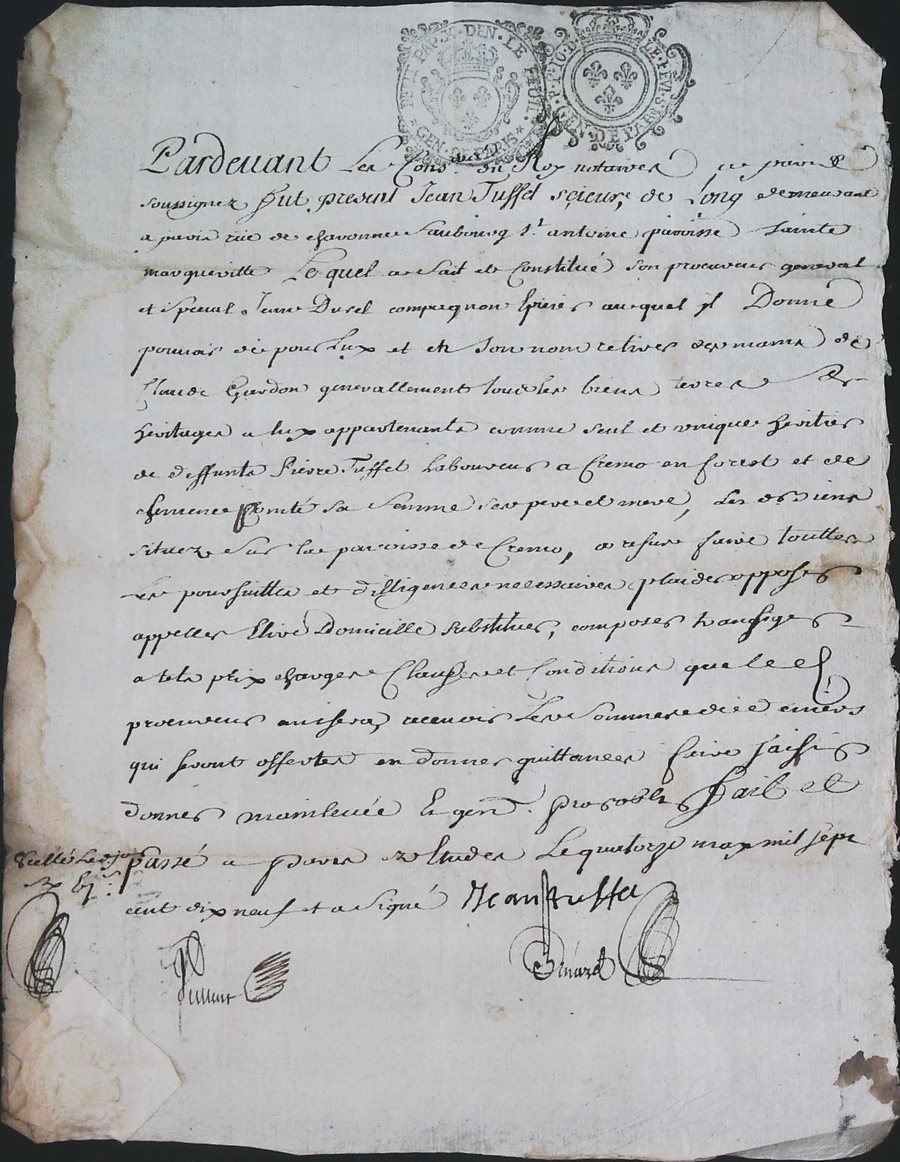 PETIT PAP. X. DEN. LE FEUIL.
GEN. DE PARIS
GEN. DE PARIS
Pardevant Les Cons. du Roy notaires a paris
soussignez fut present Jean Tuffet Scieur de Long demeurant
a paris rue de charonne faubourg St. antoine paroisse Sainte
margueritte Lequel a fait et Constitué son procureur general
et special compagnon auquel il Donne
pouvoir de pour Luy et en Son nom retirer des mains de
Claude Gardon generallement tous les biens terres &
heritages a luy appartenants comme seul et unique heritier
de deffunts Pierre Tuffet Laboureur a Cremo en forest et de
clemence Comté Sa femme ses pere et mere, Les d. biens
situez Sur la paroisse de Cremo, a refus faire touttes
Les poursuittes et dilligences necessaires plaider opposer
appeller Elire Domicille substituer, composer transiger
a tels prix charges Clauses et Conditions que le d.
procureur avisera, recevoir Les Sommes de deniers
qui seront offertes en donner quittances faire saisir
donner mainlevée Et gen. Fait et
passé a paris ez Etudes Le quatorze may mil sept
cent dix neuf et a Signé Jean tuffet
Scellé Led. jour